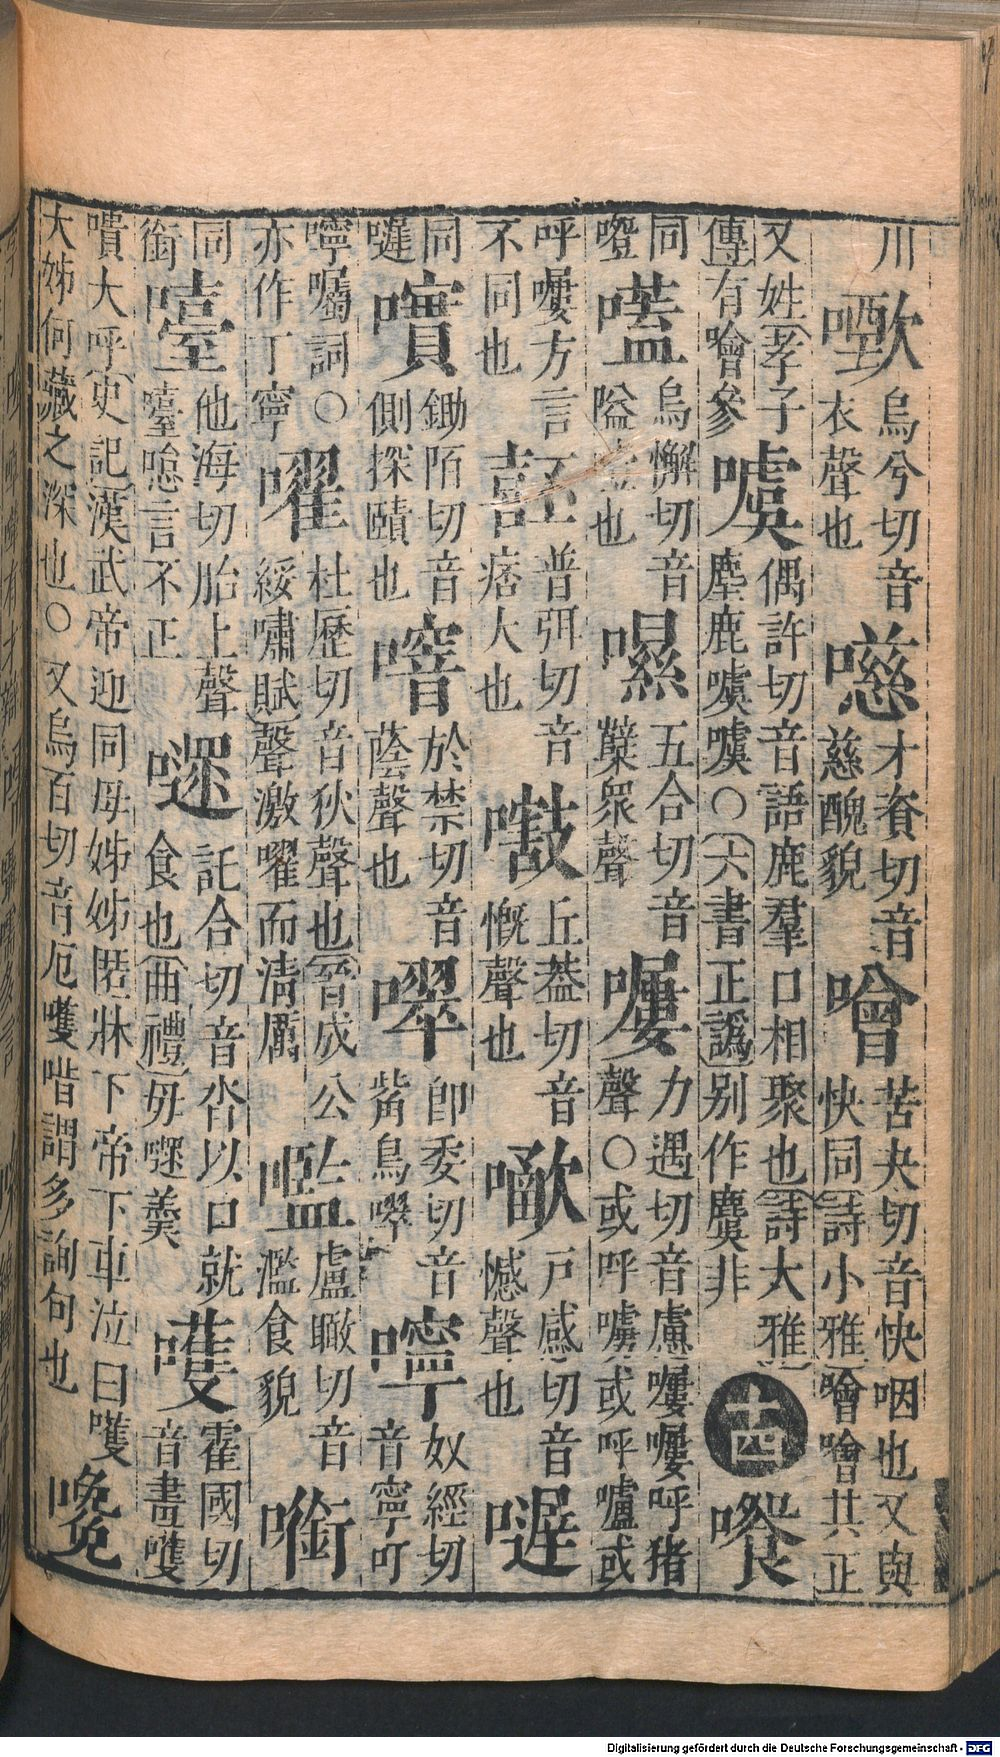 川
烏兮切音
衣聲也
才資切音
慈醜貌
噲
苦夬切音快咽也又與
快同詩小雅噲噲其正
又姓孝子
傳有噲參
噳
偶許切音語鹿羣口相聚也詩大雅
麀鹿噳噳○六書正譌别作麌非
十四
同
噔
烏懈切音
隘聲也
五合切音
櫱衆聲
嘍
力遇切音慮嘍嘍呼猪
聲○或呼嘑或呼嚧或
呼嘍方言
不同也
嚭
普弭切音
痞大也
丘葢切音
慨聲也
戶感切音
憾聲也
同
嗹
鋤陌切音
側探賾也
噾
於禁切音
蔭聲也
卽委切音
觜鳥㗱
嚀
奴經切
音寧叮
嚀囑詞○
亦作丁寧
嚁
杜歷切音狄聲也晉成公
綏嘯賦聲激嚁而清厲
嚂
盧瞰切音
濫食貌
㗸
同
銜
嚉
他海切胎上聲
嚉噫言不正
嚃
託合切音沓以口就
食也曲禮毋嚃羹
嚄
霍國切
音畫嚄
嘖大呼史記漢武帝迎同母姊姊匿牀下帝下車泣曰嚄
大姊何藏之深也○又烏百切音厄嚄唶謂多詢句也